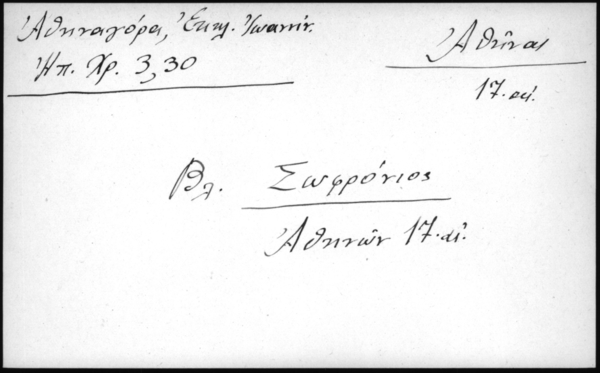 Ἀθηναγόρα, Ἐκκλ. Ἰωαννίν.
Ἠπ. Χρ. 3,30
Ἀθῆναι
17. αἰ.
Βλ. Σωφρόνιος
Ἀθηνῶν 17. αἰ.